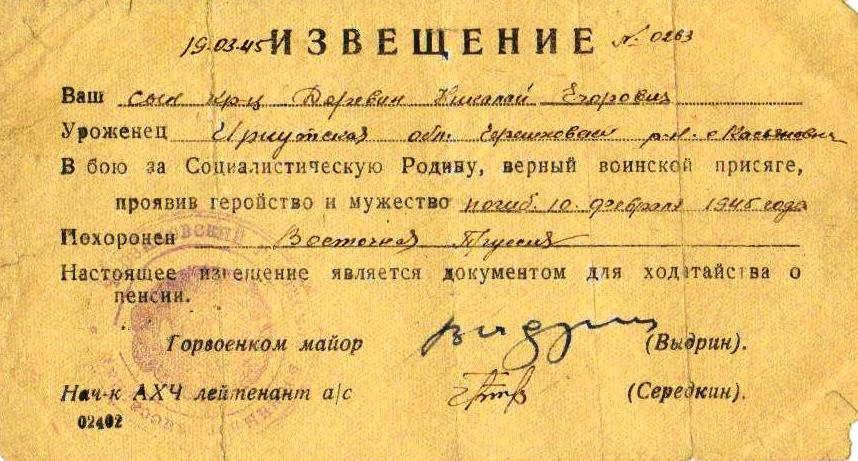 19.03.45 ИЗВЕЩЕНИЕ № 0263
Ваш сын кр-ц Деревин Николай Егорович
Уроженец Иркутская обл. р-н. с
В бою за Социалистическую Родину, верный воинской присяге,
проявив геройство и мужество погиб. 10. февраля 1945 года
Похоронен Восточная Пруссия
Настоящее извещение является документом для ходатайства о
пенсии.
Горвоенком майор (Выдрин).
Нач-к АХЧ лейтенант а/с (Середкин).
02402